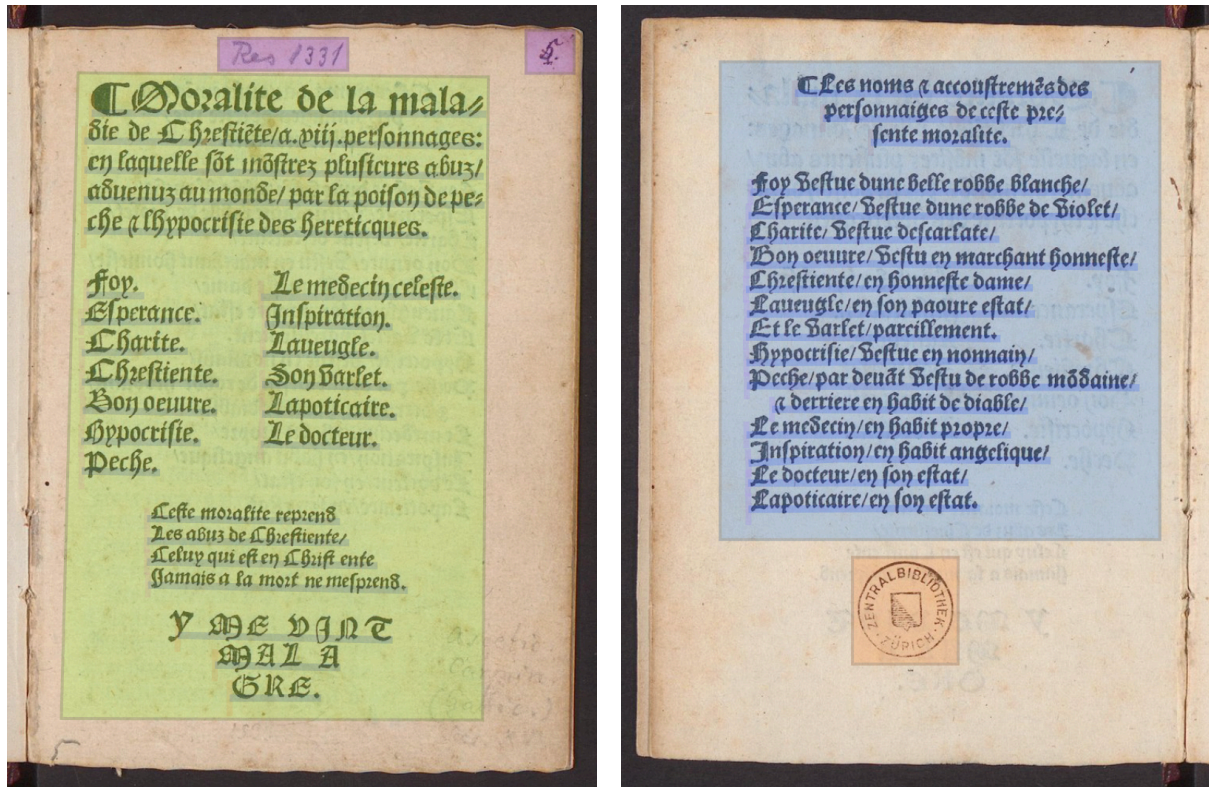 Res 1331
5.
⸿Moralite de la mala⸗
die de Chrestiẽte/a.xiij.personnages:
en laquelle sõt mõstrez plusieurs abuz/
aduenuz au monde/ par la poison de pe⸗
che ⁊ lhypocrisie des hereticques.
Foy. Le medecin celeste.
Esperance. Inspiration.
Charite. Laueugle.
Chrestiente. Son Varlet.
Bon oeuure. Lapoticaire.
Hypocrisie. Le docteur.
Peche.
Ceste moralite reprend
Les abuz de Chrestiente/
Celuy qui est en Christ ente
Jamais a la mort ne mesprend.
Y ME VINT
MAL A
GRE.
5
⸿Les noms ⁊ accoustremẽs des
personnaiges de ceste pre⸗
sente moralite.
Foy Vestue dune belle robbe blanche/
Esperance/ Vestue dune robbe de Violet/
Charite/ Vestue descarlate/
Bon oeuure/ Vestu en marchant honneste/
Chrestiente/en honneste dame/
Laueugle/en son paoure estat/
Et le Varlet/pareillement.
Hypocrisie/ Vestue en nonnain/
Peche/par deuãt Vestu de robbe mõdaine/
⁊ derriere en habit de diable/
Le medecin/en habit propre/
Inspiration/en habit angelique/
Le docteur/en son estat/
Lapoticaire/en son estat.
ZENTRALBIBLIOTHEK
· ZÜRICH ·